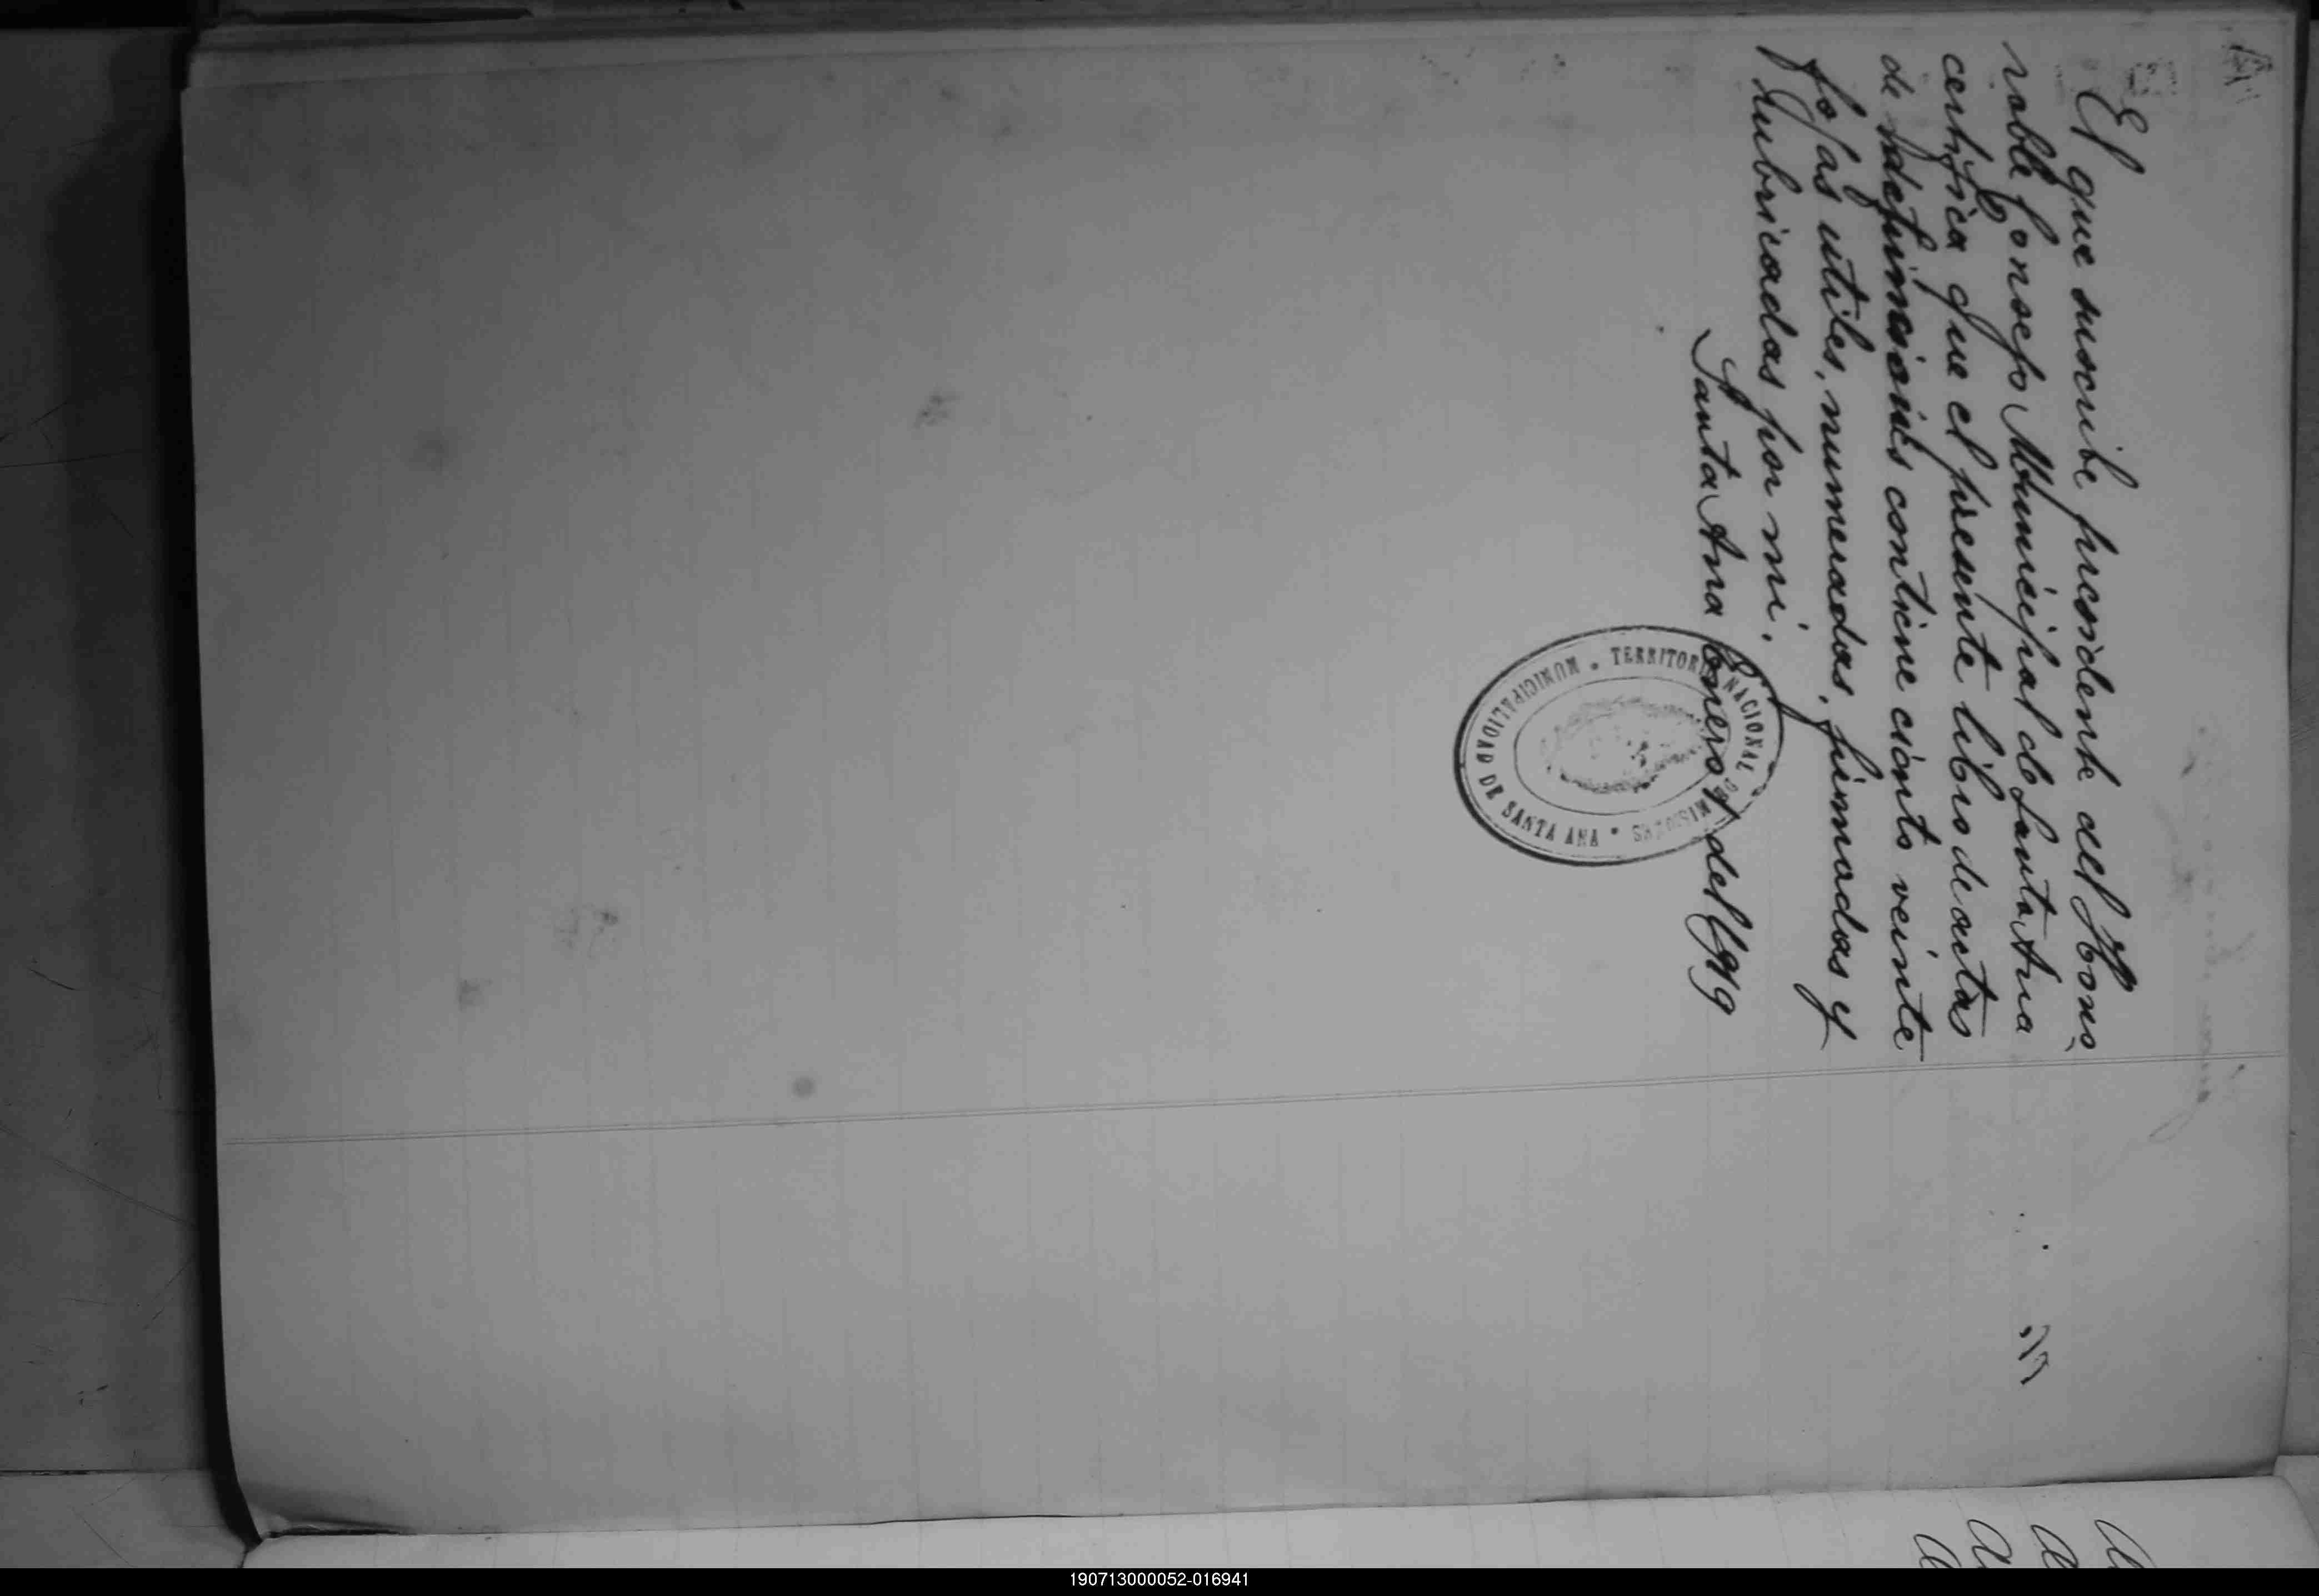 El que suscribe presidente del Hono
rable Consejo Municipal de Santa Ana
certifica que el presente libro de actas
de defunciones contiene ciento veinte
fojas utiles, numeradas, firmadas y
rubricadas por mi.
Santa Ana Enero 1 del 1919
TERRITORIO NACIONAL DE MISIONES • MUNICIPALIDAD DE SANTA ANA •
190713000052-016941